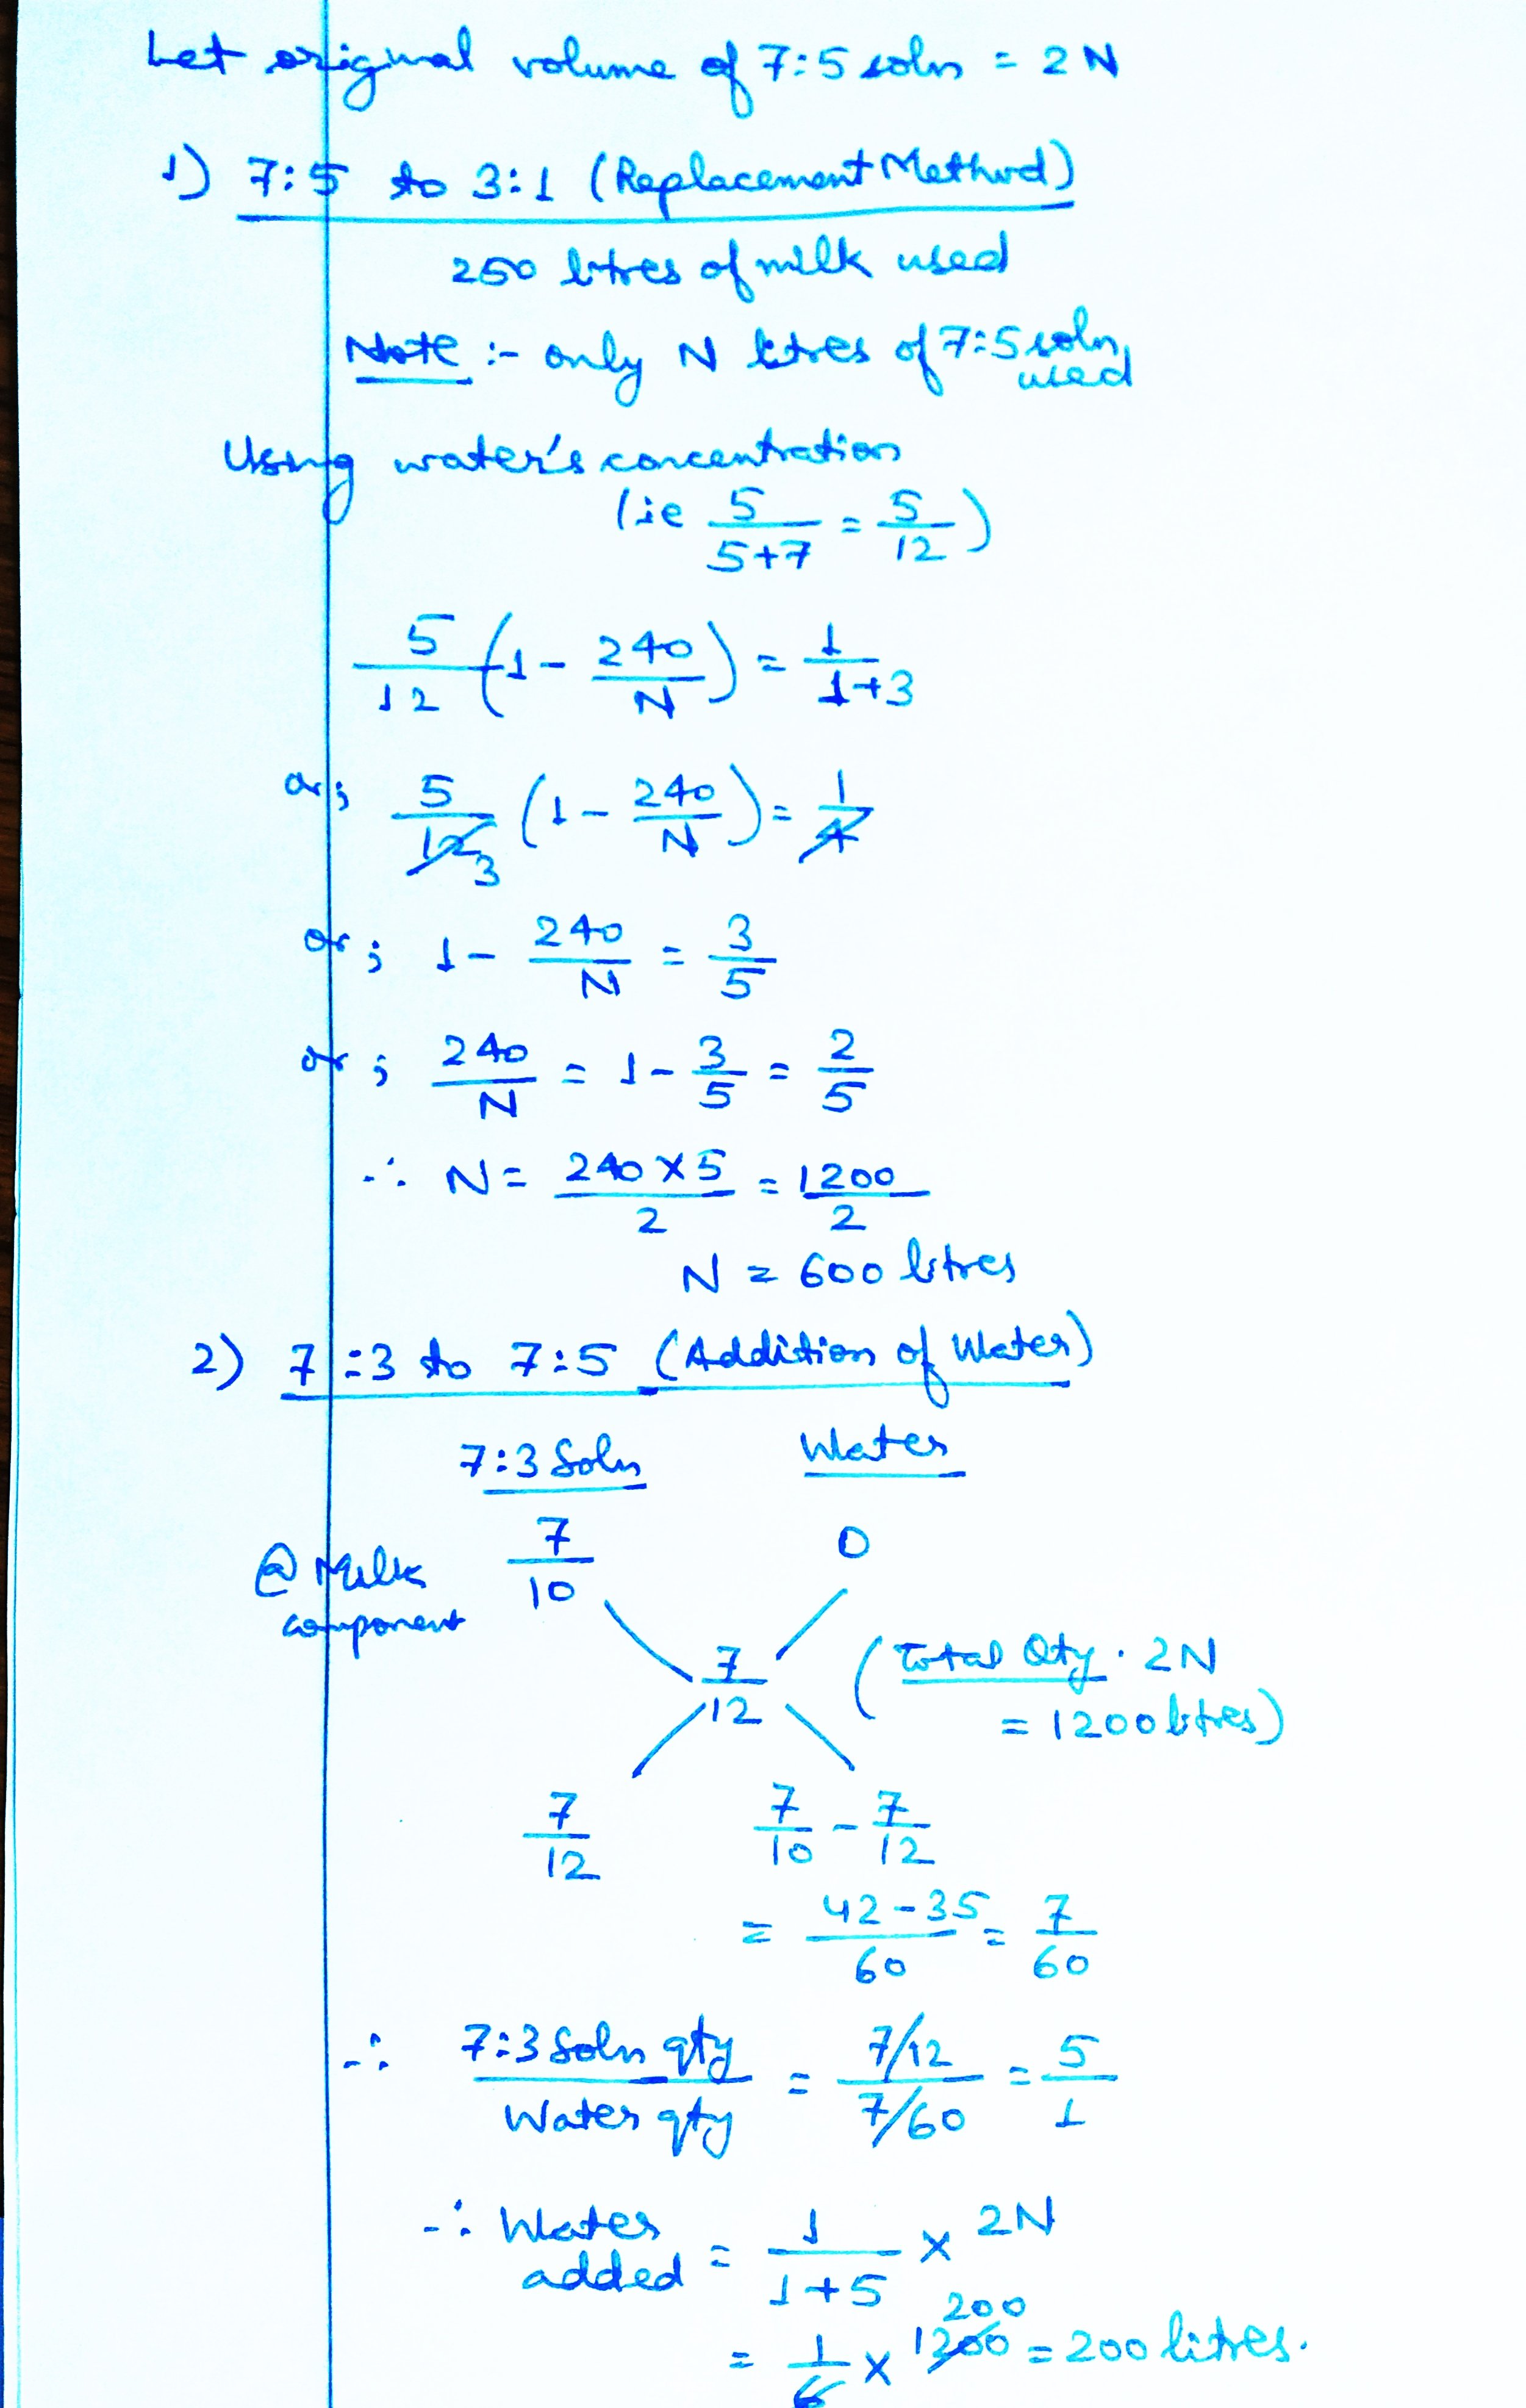 Let original volume of 7:5 soln = 2N
1) 7:5 to 3:1 (Replacement Method)
250 litres of milk used
Note :- only N litres of 7:5 soln used
Using water's concentration
(ie 5/(5+7) = 5/12)
5/12 (1 - 240/N) = 1/(1+3)
or; 5/12 3 (1 - 240/N) = 1/4
or; 1 - 240/N = 3/5
or; 240/N = 1 - 3/5 = 2/5
∴ N = (240 X 5)/2 = 1200/2
N = 600 litres
2) 7:3 to 7:5 (Addition of Water)
7:3 Soln Water
@ Milk component 7/10 0
7/12 (Total Qty. 2N
= 1200 litres)
7/12 7/10 - 7/12
= (42-35)/60 = 7/60
∴ 7:3 Soln qty/Water qty = (7/12)/(7/60) = 5/1
∴ Water added = 1/(1+5) X 2N
= 1/6 X 1200 200 = 200 litres.